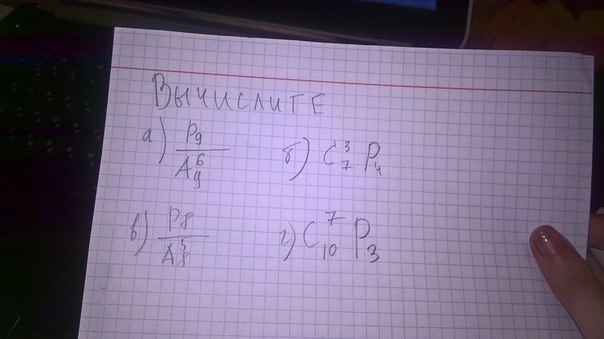 Вычислите
а) P₉ / A₉⁶ б) C₇³ P₄
в) P₈ / A₈⁵ г) C₁₀⁷ P₃